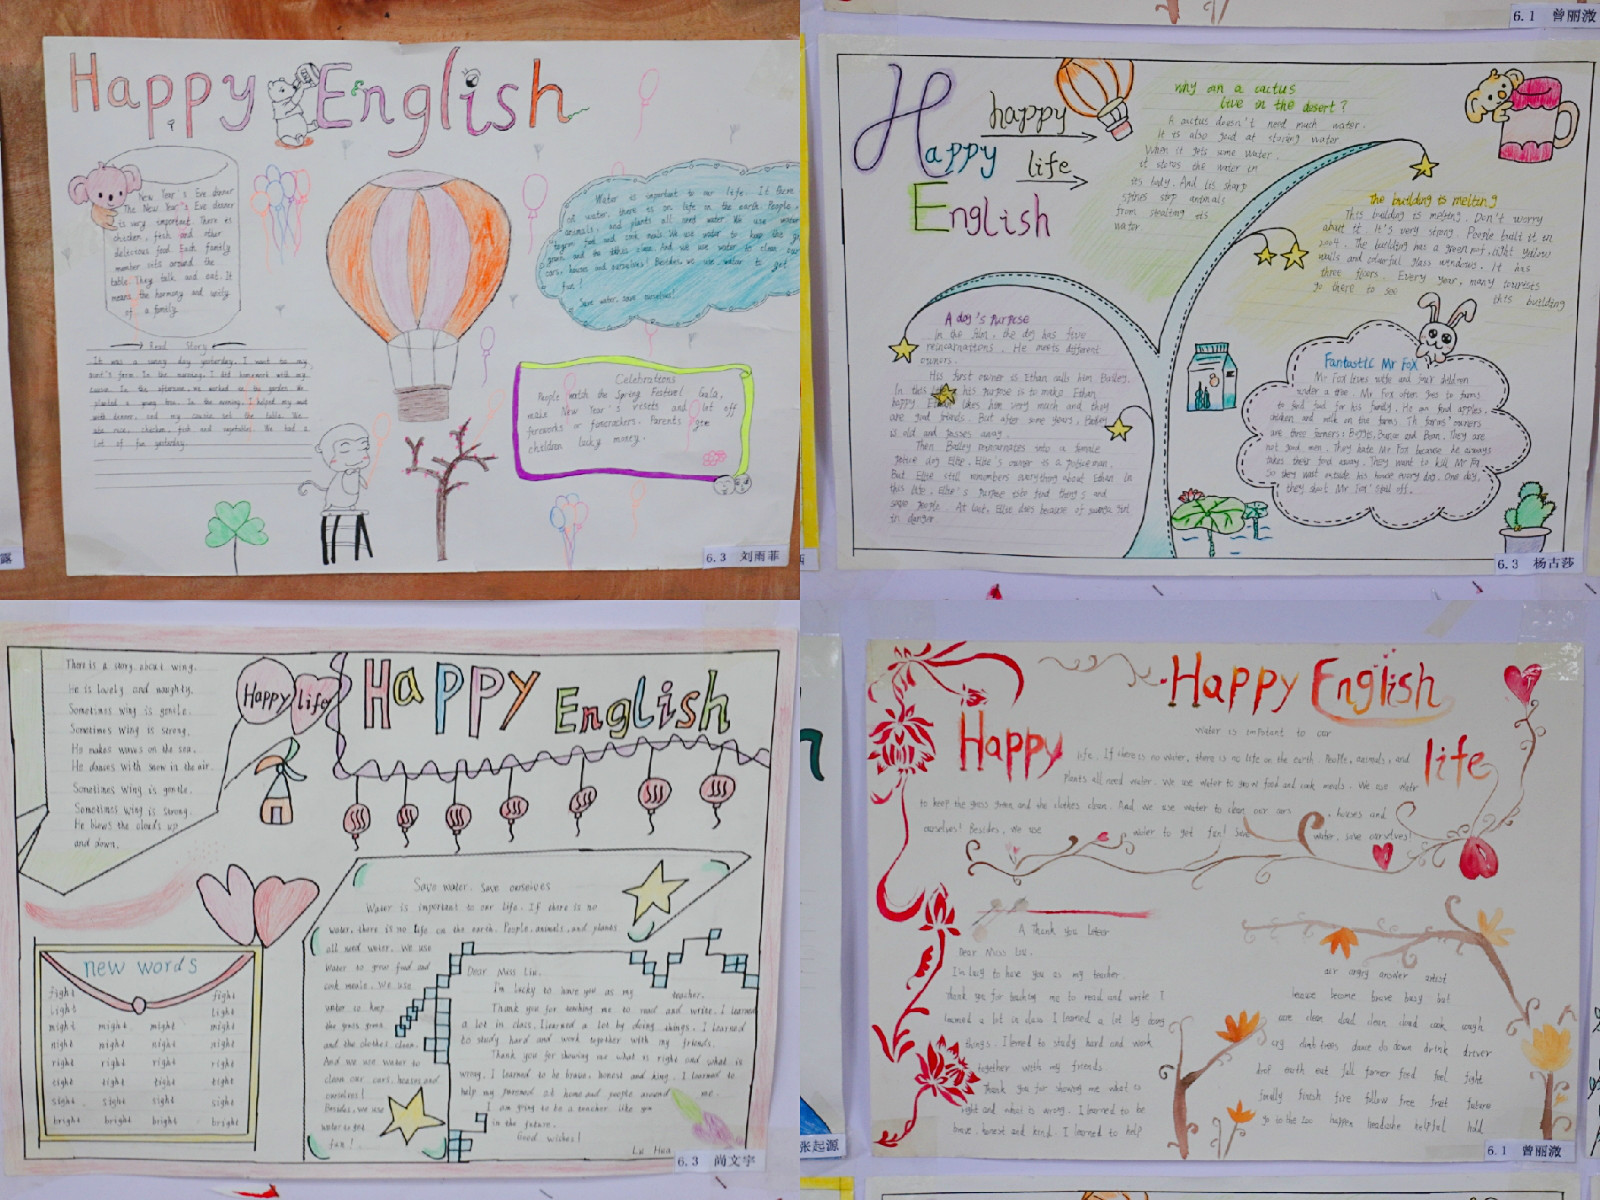 Happy English
New Year's Eve dinner
The New Year's Eve dinner
is very important. There is
chicken, fish and other
delicious food. Each family
member sits around the
table. They talk and eat. It
means the harmony and unity
of a family.
Read Story
It was a sunny day yesterday. I went to my
aunt's farm. In the morning, I did homework with my
cousin. In the afternoon, we worked in the garden. We
planted a young tree. In the evening, I helped my aunt
with dinner, and my cousin set the table. We
ate rice, chicken, fish and vegetables. We had a
lot of fun yesterday.
Water is important to our life. If there
water, there is no life on the earth. People,
animals, and plants all need water. We use water
grow food and cook meals. We use water to keep the
grass and the clothes clean. And we use water to clean our
cars, houses and ourselves! Besides, we use water to get
fun!
Save water, save ourselves!
Celebrations
People watch the Spring Festival Gala,
make New Year's visits and let off
fireworks or firecrackers. Parents give
children lucky money.
6.3 刘雨菲
6.1 曾丽溦
Happy
English
happy
life
why can a cactus
live in the desert?
A cactus doesn't need much water.
It is also good at storing water
When it gets some water,
it stores the water in
its body. And its sharp
spines stop animals
from stealing its
water
The building is melting
This building is melting. Don't worry
about it. It's very strong. People built it in
2004. The building has a green roof, light yellow
walls and colorful glass windows. It has
three floors. Every year, many tourists
go there to see this building
A dog's Purpose
In the film, the dog has five
reincarnations. He meets different
owners.
His first owner is Ethan calls him Bailey.
In this life, his purpose is to make Ethan
happy. Ethan likes him very much and they
are good friends. But after some years, Bailey
is old and passes away.
Then Bailey reincarnates into a female
police dog Ellie. Ellie's owner is a policeman.
But Ellie still remembers everything about Ethan in
this life, Ellie's purpose is to find things and
save people. At last, Ellie dies because of girl
in danger
Fantastic Mr Fox
Mr Fox lives with and four children
under a tree. Mr. Fox often goes to farms
to find food for his family. He can find apples,
chicken and milk on the farms. Th farms' owners
are three farmers: Boggis, Bunce and Bean. They are
not good men. They hate Mr Fox because he always
takes their food away. They want to kill Mr Fox.
So they wait outside his house every day. One day,
they shot Mr Fox' tail off.
6.3 杨古莎
There is a story about wing.
He is lovely and naughty.
Sometimes wing is gentle.
Sometimes wing is strong.
He makes waves on the sea.
He dances with snow in the air.
Sometimes wing is gentle.
Sometimes wing is strong.
He blows the clouds up
and down.
Happy life
Happy English
new words
fight fight
light light
might might might might
night night night night
right right right right
tight tight tight tight
sight sight sight sight
bright bright bright bright
Save water, save ourselves
Water is important to our life. If there is no
water, there is no life on the earth. People, animals, and plants
all need water. We use
water to grow food and
cook meals. We use
water to keep
the grass green
and the clothes clean.
And we use water to
clean our cars, houses and
ourselves!
Besides, we use
water to get
fun!
Dear Miss Liu,
I'm lucky to have you as my teacher.
Thank you for teaching me to read and write. I learned
a lot in class. I learned a lot by doing things. I learned
to study hard and work together with my friends.
Thank you for showing me what is right and what is
wrong. I learned to be brave, honest and king. I learned to
help my parents at home and people around me.
I am going to be a teacher like you
in the future.
Good wishes!
Lu Hua
6.3 尚文宇
张起源
Happy English
Happy life
Water is impotant to our
life. If there is no water, there is no life on the earth. People, animals, and
plants all need water. We use water to grow food and cook meals. We use water
to keep the grass green and the clothes clean. And we use water to clean our cars, houses and
ourselves! Besides, we use water to get fun! Save water, save ourselves!
A Thank you Letter
Dear Miss Liu,
I'm lucy to have you as my teacher.
Thank you for teaching me to read and write. I
learned a lot in class. I learned a lot by doing
things. I lerned to study hard and work
together with my friends.
Thank you for showing me what is
right and what is wrong. I learned to be
brave, honest and kind. I learned to help
air angry answer artist
because become brave busy but
care clean cloud clean cloud cook cough
cry climb trees dance do down drink driver
earth eat fall farmer feed feel fight
finally finish fire follow free future
go to the zoo happen headache helpful hold
6.1 曾丽溦